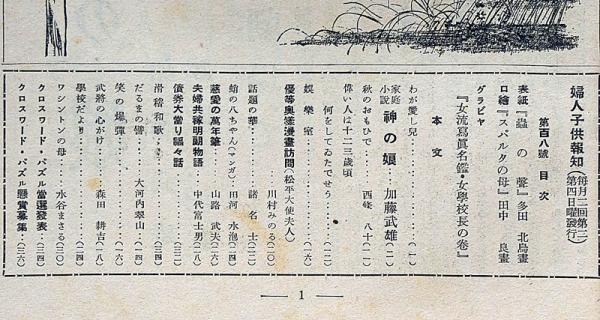 婦人子供報知(毎月二回第二第四日曜發行)
第百八號 目次
表紙『蟲の聲』多田北烏畫
口繪『スパルタの母』田中良畫
グラビヤ
『女流寫眞名鑑・女學校長の卷』
本文
わが愛し兒……(一)
家庭小説 神の娘……加藤武雄(二)
秋のおもひで……西條八十(二)
偉い人は十二三歳頃
何をしてゐたでせう……(一二)
娯樂室……(一六)
優等奥樣漫畫訪問(松平大使夫人)
川村みのる(二〇)
話題の華……諸名士(二二)
蛸の八ちやん(マンガ)田河水泡(二四)
慈愛の萬年筆……山路武夫(二六)
夫婦共稼明朗物語 中代富士男(二八)
債券大當り福々話……(二二)
滑稽和歌……(二三)
だるまの譽……大河内翠山(一四)
笑の爆彈……(一六)
武將の心がけ……森田耕吉(一八)
學校だより……(二四)
ワシントンの母……水谷まさる(三〇)
クロスワード・パズル當選發表(三四)
クロスワード・パズル懸賞募集…(三六)
1